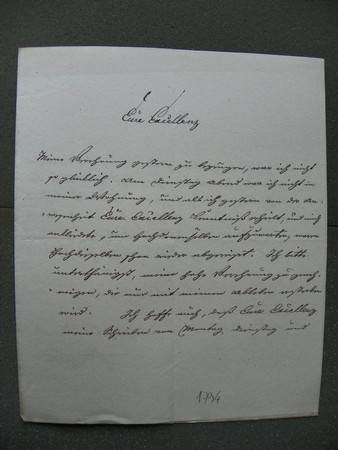 Eure Excellenz
Meine Verehrung gestern zu bezeugen, war ich nicht
so glücklich. Am Dienstag Abend war ich nicht in
meiner Wohnung, und als ich gestern von der An-
wesenheit Eure Excellenz Kenntniß erhielt, und mich
ankleidete, um Hochdenenselben aufzuwarten, waren
Hochdieselben schon wieder abgereist. Ich bitte
unterthänigst, meine hohe Verehrung zu geneh-
migen, die nur mit meinem Ableben ersterben
wird. Ich hoffe auch, daß Eure Excellenz
meine Schreiben von Montag, Dienstag und